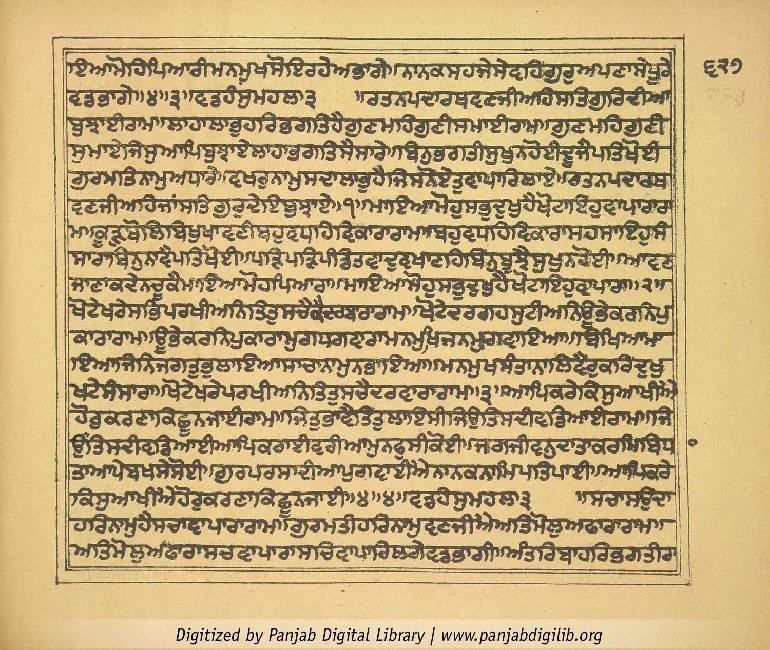 ੬੨੭
ਇਆਮੋਹਿਪਿਆਰੀਮਨਮੁਖਸੋਇਰਹੇਅਭਾਗੇ॥ਨਾਨਕਸਹਜੇਸੇਵਹਿਗੁਰੁਅਪਣਾਸੇਪੂਰੇ
ਵਡਭਾਗੇ॥੪॥੩॥ਵਡਹੰਸੁਮਹਲਾ੩ ॥ਰਤਨਪਦਾਰਥਵਣਜੀਅਹਿਸਤਿਗੁਰਿਦੀਆ
ਬੁਝਾਈਰਾਮ॥ਲਾਹਾਲਾਭੁਹਰਿਭਗਤਿਹੈਗੁਣਮਹਿਗੁਣੀਸਮਾਈਰਾਮ॥ਗੁਣਮਹਿਗੁਣੀ
ਸਮਾਏਜਿਸੁਆਪਿਬੁਝਾਏਲਾਹਾਭਗਤਿਸੈਸਾਰੇ॥ਬਿਨੁਭਗਤੀਸੁਖੁਨਹੋਈਦੂਜੈਪਤਿਖੋਈ
ਗੁਰਮਤਿਨਾਮੁਅਧਾਰੇ॥ਵਖਰੁਨਾਮੁਸਦਾਲਾਭੁਹੈਜਿਸਨੋਏਤੁਵਾਪਾਰਿਲਾਏ॥ਰਤਨਪਦਾਰਥ
ਵਣਜੀਅਹਿਜਾਂਸਤਿਗੁਰੁਦੇਇਬੁਝਾਏ॥੧॥ਮਾਇਆਮੋਹੁਸਭੁਦੁਖੁਹੈਖੋਟਾਇਹੁਵਾਪਾਰਾਰਾ
ਮ॥ਕੂੜੁਬੋਲਿਬਿਖੁਖਾਵਣੀਬਹੁਵਧਹਿਵਿਕਾਰਾਰਾਮ॥ਬਹੁਵਧਹਿਵਿਕਾਰਾਸਹਸਾਇਹੁਸੰ
ਸਾਰਾਬਿਨੁਨਾਵੈਪਤਿਖੋਈ॥ਪੜਿਪੜਿਪੰਡਿਤਵਾਦੁਵਖਾਣਹਿਬਿਨੁਬੂਝੈਸੁਖੁਨਹੋਈ॥ਆਵਣ
ਜਾਣਾਕਦੇਨਚੂਕੈਮਾਇਆਮੋਹਪਿਆਰਾ॥ਮਾਇਆਮੋਹੁਸਭੁਦੁਖੁਹੈਖੋਟਾਇਹੁਵਾਪਾਰਾ॥੨॥
ਖੋਟੇਖਰੇਸਭਿਪਰਖੀਅਨਿਤਿਤੁਸਚੇਕੈਦਰਬਾਰਾਰਾਮ॥ਖੋਟੇਦਰਗਹਸੁਟੀਅਨਿਊਭੇਕਰਨਿਪੁ
ਕਾਰਾਰਾਮ॥ਊਭੇਕਰਨਿਪੁਕਾਰਾਮੁਗਧਗਵਾਰਾਮਨਮੁਖਿਜਨਮੁਗਵਾਇਆ॥ਬਿਖਿਆਮਾ
ਇਆਜਿਨਿਜਗਤੁਭੁਲਾਇਆਸਾਚਾਨਾਮੁਨਭਾਇਆ॥ਮਨਮੁਖਸੰਤਾਨਾਲਿਵੈਰੁਕਰਿਦੁਖੁ
ਖਟੇਸੰਸਾਰਾ॥ਖੋਟੇਖਰੇਪਰਖੀਅਨਿਤਿਤੁਸਚੈਦਰਵਾਰਾਰਾਮ॥੩॥ਆਪਿਕਰੇਕਿਸੁਆਖੀਐ
ਹੋਰੁਕਰਣਾਕਿਛੂਨਜਾਈਰਾਮ॥ਜਿਤੁਭਾਵੈਤਿਤੁਲਾਇਸੀਜਿਉਤਿਸਦੀਵਡਿਆਈਰਾਮ॥ਜਿ
ਉਤਿਸਦੀਵਡਿਆਈਆਪਿਕਰਾਈਵਰੀਆਮੁਨਫੁਸੀਕੋਈ॥ਜਗਜੀਵਨੁਦਾਤਾਕਰਮਿਬਿਧਾ
ਤਾਆਪੇਬਖਸੇਸੋਈ॥ਗੁਰਪਰਸਾਦੀਆਪੁਗਵਾਈਐਨਾਨਕਨਾਮਿਪਤਿਪਾਈ॥ਆਪਿਕਰੇ
ਕਿਸੁਆਖੀਐਹੋਰੁਕਰਣਾਕਿਛੂਨਜਾਈ॥੪॥੪॥ਵਡਹੰਸੁਮਹਲਾ੩ ॥ਸਚਾਸਉਦਾ
ਹਰਿਨਾਮੁਹੈਸਚਾਵਾਪਾਰਾਰਾਮ॥ਗੁਰਮਤੀਹਰਿਨਾਮੁਵਣਜੀਐਅਤਿਮੋਲੁਅਫਾਰਾਰਾਮ॥
ਅਤਿਮੋਲੁਅਫਾਰਾਸਚਵਾਪਾਰਾਸਚਿਵਾਪਾਰਿਲਗੇਵਡਭਾਗੀ॥ਅੰਤਰਿਬਾਹਰਿਭਗਤੀਰਾ
Digitized by Panjab Digital Library | www.panjabdigilib.org